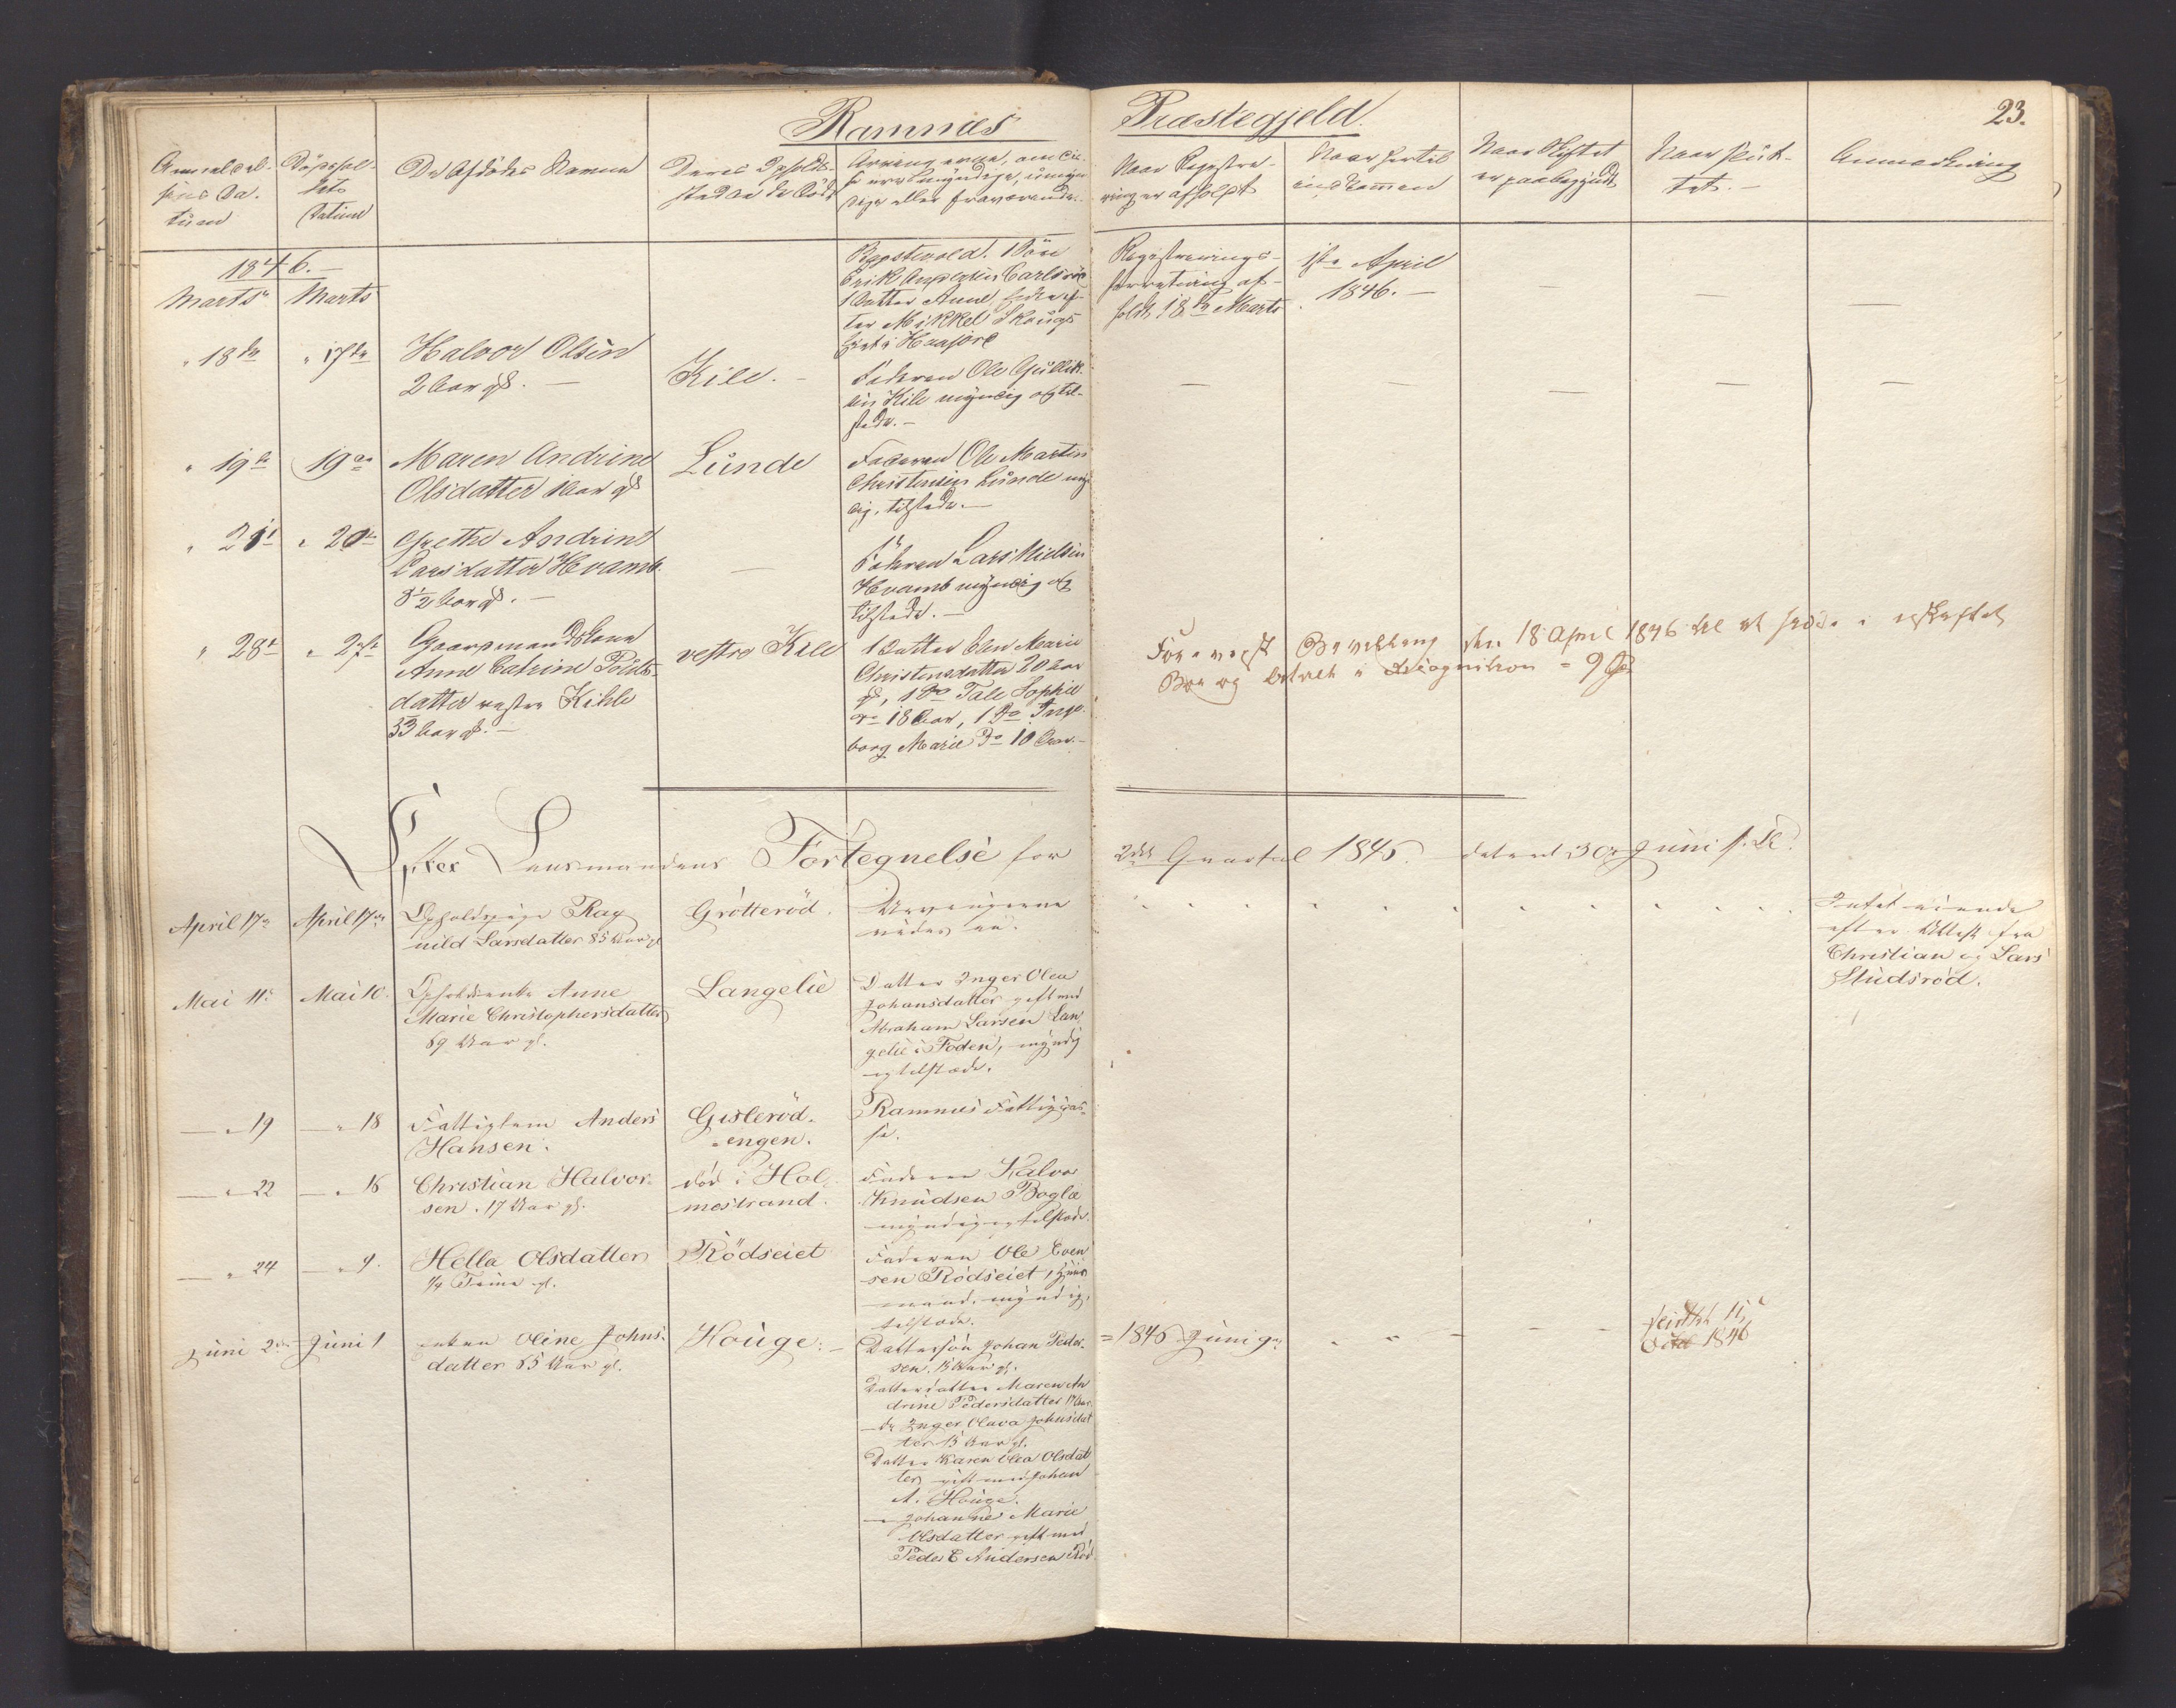 Ramnæs Præstegjeld.
23.
Anmeldel-
sens Da-
tum
Dødsfal-
dets
Datum
De Afdødes Navne
Deres Opholds-
sted da de døde
Arvingerne, om di-
se ere myndige, umyn-
dige eller fraværende.
Naar Registre-
ring er afholdt
Naar hertil
indkommen
Naar Skiftet
er paabegyndt
Naar slut-
tet.
Anmærkning
1846.
Marts Marts
1 Søn
Erik
1 Datter Anne,
ter Mikkel
Registrerings-
forretning af-
holdt 18de Marts
1ste April
1846.
" 18de " 17de Halvor Olsen
2 Aar gl.
Kile.
Faderen Ole Gullik-
sen Kile myndig og til-
stede.
" 19de 19de Maren Andrine
Olsdatter 1 Aar gl
Lunde
Faderen Ole Martin
Christensen Lunde myn-
dig, tilstede.
" 21 " 20de Grethe Andrine
Larsdatter Hvamb
8 1/2 Aar gl.
Faderen Lars Nielsen
Hvamb myndig og
tilstede.
" 28de " 27de Gaardmandskone
Anne Catrine Pouls-
datter vestre Kihle
53 Aar gl.
vestre Kile
1 Datter Elen Marie
Christensdatter 20 Aar
gl, 1 Do Tale Sophie
Do 18 Aar, 1 Do Inge-
borg Marie Do 10 Aar.
Forevist Bevilling den 18 April 1846 til at sidde i uskiftet
Boe og betalt i Recognition = 9
Efter Lensmandens Fortegnelse for 2det Quartal 1846. dateret 30 Juni s. A.
April 17de April 17de Rag
nild Larsdatter 85 Aar gl
Grötteröd.
Arvingerne
Intet eiende
efter Attest fra
Christian og Lars
Studsröd.
Mai 11te Mai 10. Anne
Marie Christophersdatter
69 Aar gl.
Langelie
Datter Inger Olea
Johansdatter gift med
Abraham Larsen Lan
gelie i Foden, myndig
og tilstæde.
— " 19 — " 18 Fattiglem Anders
Hansen.
Gisleröd-
engen.
Ramnæs Fattigkas-
se.
— " 22 — " 16 Christian Halvor-
sen. 17 Aar gl.
död i Hol-
mestrand.
Faderen Halvor
Knudsen Boglæ
myndig og tilstæde.
— " 24 — " 9. Hella Olsdatter
1/4 Time gl.
Rödseiet
Faderen Ole Even
sen Rödseiet, Huus
mand, myndig,
tilstæde.
Juni 2den Juni 1 Enken Oline Johns-
datter 65 Aar gl.
Houge.
Dattersön Johan Peder-
sen. 15 Aar gl.
Datterdatter Maren An
drine Pedersdatter 17 Aar
— do Inger Olava Johnsdat
ter 15 Aar gl.
Datter Karen Olea Olsdat
ter gift med Johan
A. Houge.
— " Johanne Marie
Olsdatter gift med
Peder C Andersen Röd.
= 1846 Juni 9de
sluttet 11
1846